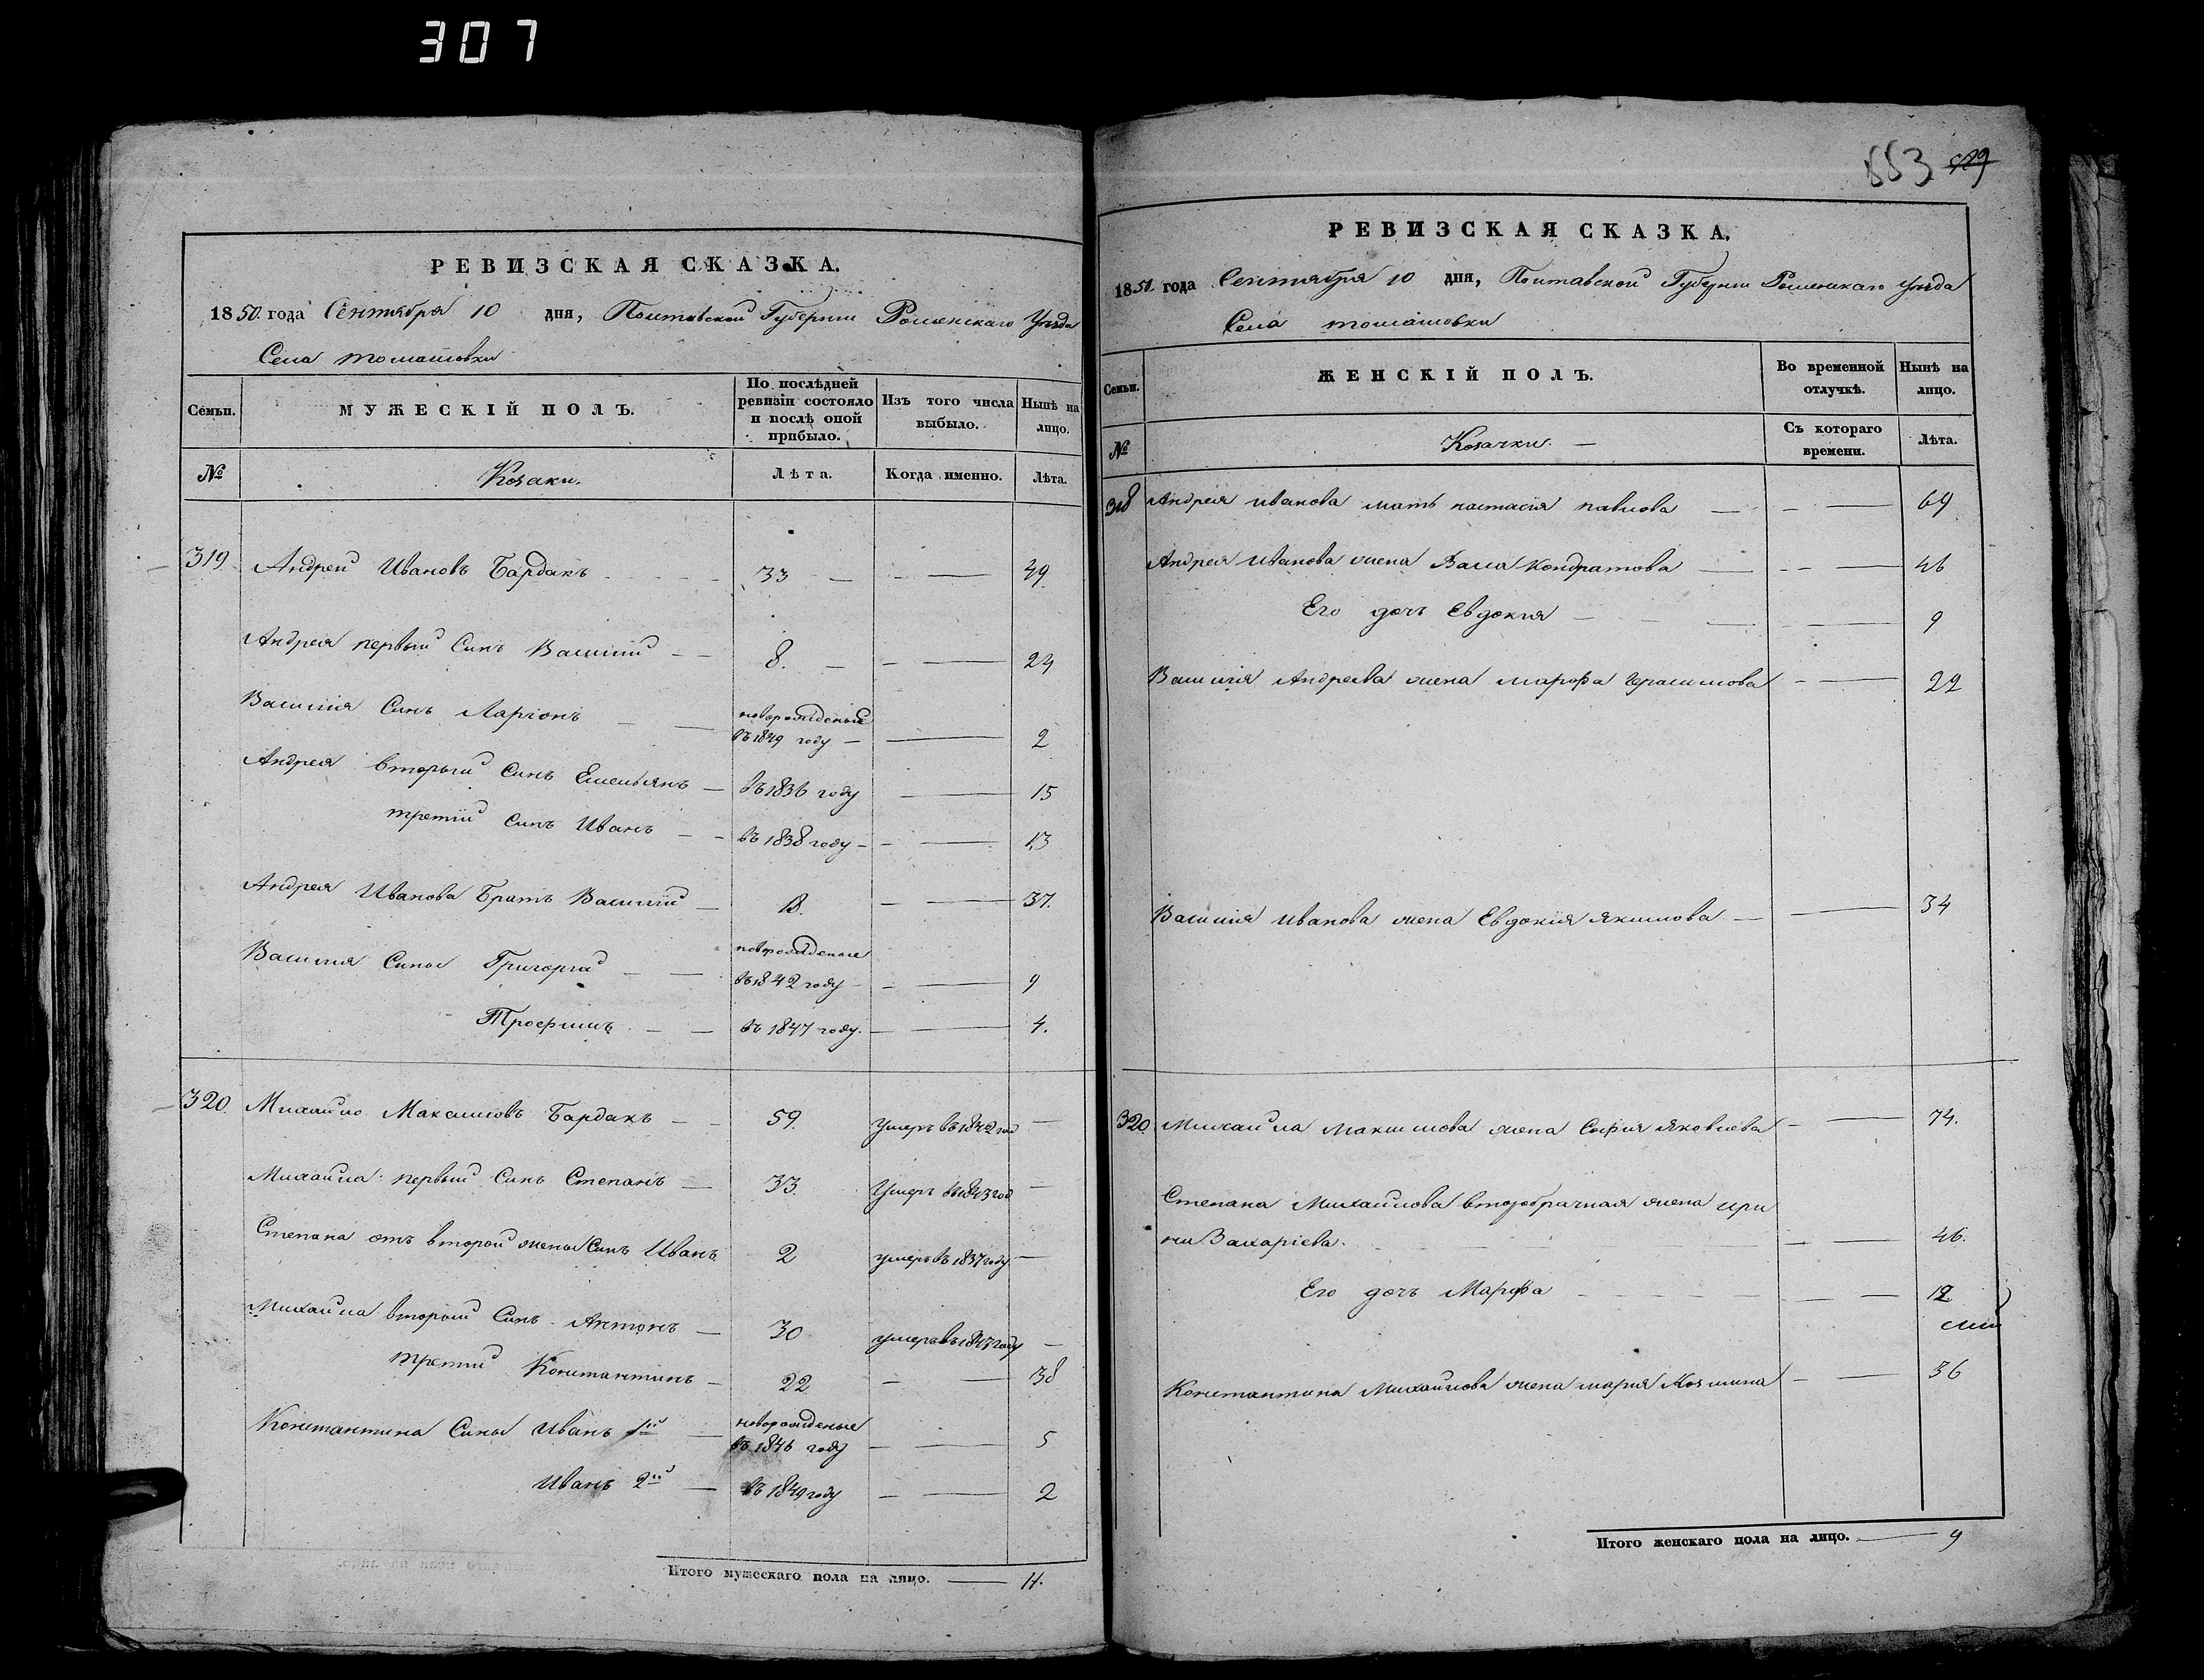 307
РЕВИЗСКАЯ СКАЗКА.
1850. года Сентября 10 дня, Полтавской Губернии Роменскаго Уезда
Села томашовки
Семьи.
МУЖЕСКІЙ ПОЛЪ.
По послѣдней ревизіи состояло и послѣ оной прибыло.
Изъ того числа выбыло.
Нынѣ на лицо.
№
Козаки.
Лѣта.
Когда именно.
Лѣта.
319. Андрей Ивановъ Бардакъ 33 49.
Андрея первый Синъ Василий 8. 24
Василия Синъ Ларіонъ новорожденый въ 1849 году 2
Андрея вторый Синъ Емельянъ въ 1836 году 15
третий синъ Иванъ въ 1838 году 13
Андрея Иванова Братъ Василий 37.
Василия Сины Григорий новорожденые въ 1842 году 9
Трофимъ въ 1847 году. 4.
320. Михайло Максимовъ Бардакъ 59. умеръ въ 1842 год
Михайла первый Синъ Степанъ 33. Умеръ въ 1843 год
Степана отъ второй жены Синъ Иванъ 2 умеръ въ 1837 году
Михайла второй Синъ Антонъ 30 умеръ въ 1847 году
третий Константинъ 22 38
Константина Сины Иванъ 1й новорожденые въ 1846 году 5
Иванъ 2й въ 1849 году 2
Итого мужескаго пола на лицо. 11.
883
РЕВИЗСКАЯ СКАЗКА.
1850. года Сентября 10 дня, Полтавской Губернии Роменскаго Уезда
Села томашовки
Семьи.
ЖЕНСКІЙ ПОЛЪ.
Во временной отлучкѣ.
Нынѣ на лицо.
№
Козачки.
Съ котораго времени.
Лѣта.
Андрея иванова мать настасия павлова 69
Андрея иванова жена Кондратова 46
Его дочь Евдокия 9
Василия Андреева жена марфа Герасимова 22
Василия иванова жена Евдокия Якимова 34
320. Михайла максимова жена София Яковлева 74.
Степана Михайлова второбрачная жена ири
на Захаріева. 46.
Его дочь Марфа 12
Константина Михайлова жена мария 36
Итого женскаго пола на лицо. 9